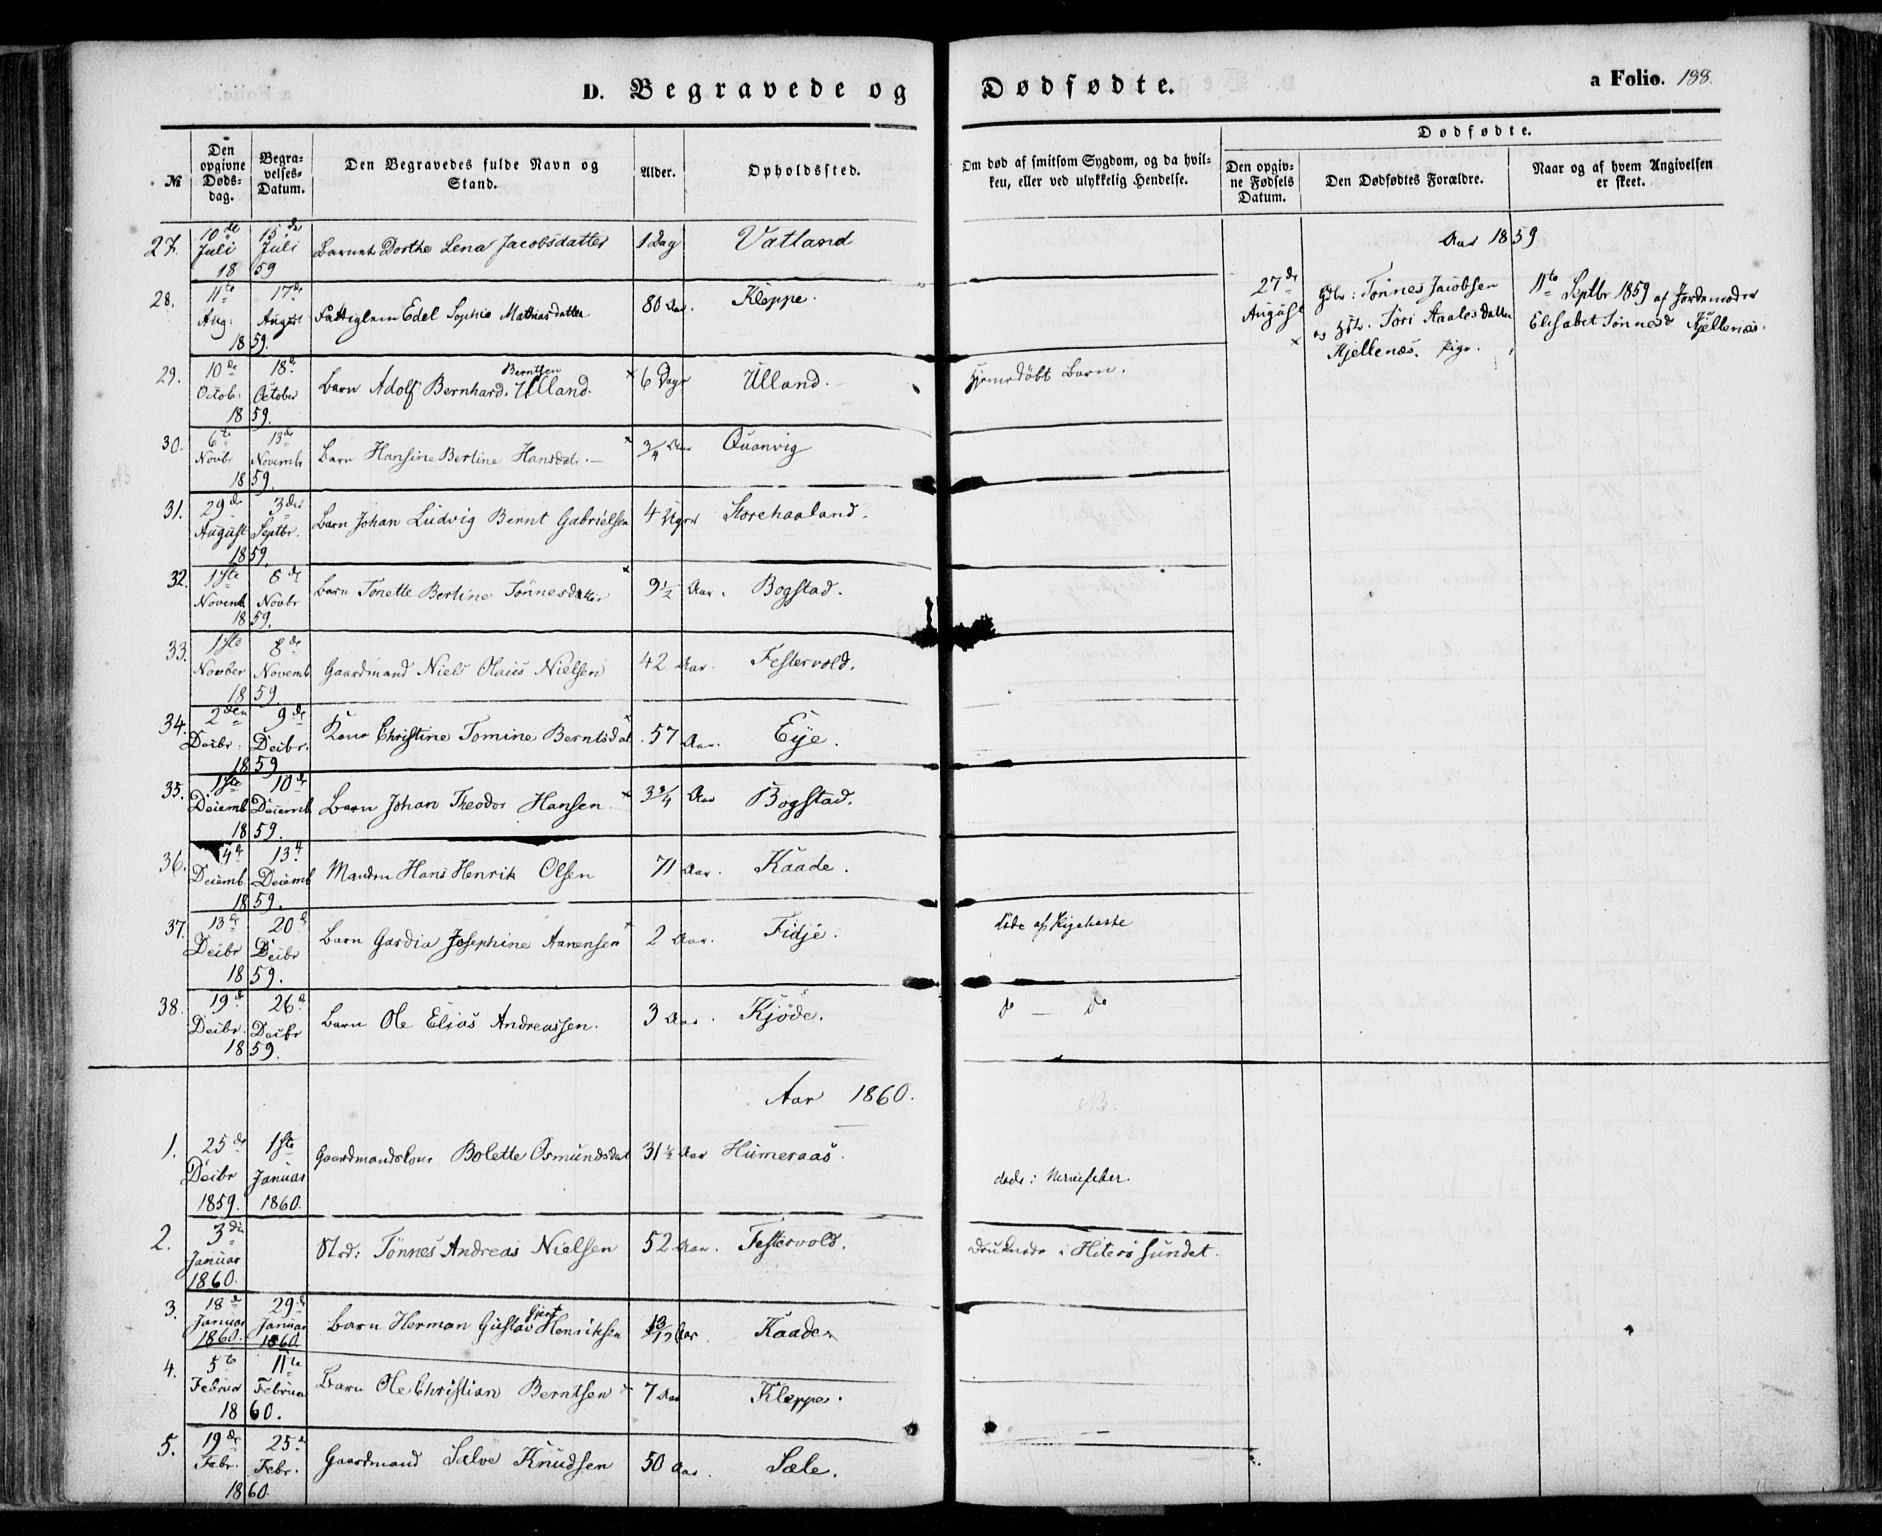 D. Begravede og Dødfødte. a Folio. 188.
№ Den opgivne Døds-dag. Begra-velses-Datum. Den Begravedes fulde Navn og Stand. Alder. Opholdssted. Om død af smitsom Sygdom, og da hvil-ken, eller ved ulykkelig Hendelse. Dødfødte. Den opgiv-ne Fødsels Datum. Den Dødfødtes Forældre. Naar og af hvem Angivelsen er skeet.
27. 10de Juli 15de Juli 1859 Barnet Dorthe Lena Jacobsdatter 1 Dag Vatland
Aar 1859
28. 11te Aug: 17de August 1859. Fattiglem Edel Sophie Mathiasdatter 80 Aar. Kleppe.
27de August × Gdbr: Tønnes Jacobsen og Hst. Tori Aalesdatter Hjellenæs. Pige. 11te Septbr 1859 af Jordemoder Elisabet Tønnesd Hjellenæs.
29. 10de Octob: 18de October 1859. Barn Adolf Bernhard Berntsen Ulland. × 6 Dage Ulland. Hjemedöbt Barn.
30. 6te Novbr 13de Novembr 1859. Barn Hansine Bertine Hansdatr. × 3/4 Aar Quanvig
31. 29de August 3die Septbr. 1859. Barn Johan Ludvig Bernt Gabrielsen 4 Uger Storehaaland.
32. 1ste Novemb 8de Novbr 1859. Barn Tonette Bertine Tønnesdatter × 9 1/2 Aar. Bogstad.
33. 1ste Novber 8de Novemb 1859. Gaardmand Niels Olaus Nielsen 42 Aar. Festervold.
34. 2den Decbr. 9de Decbr. 1859 Kone Christine Tomine Berntsdat × 57 Aar. Eye.
35. 1ste Decemb 10de Decemb 1859. Barn Johan Theodor Hansen × 3 3/4 Aar Bogstad.
36. 4de Decemb. 13de Decemb 1859. Manden Hans Henrik Olsen 71 Aar. Kaade.
37. 13de Decbr 20de Decbr 1859. Barn Gardia Josephine Aanensen × 2 Aar. Fidje. døde af Kighoste
38. 19de Decbr. 26de Decbr 1859. Barn Ole Elias Andreassen. 3 Aar. Kjöde. do — do
Aar 1860.
1. 25de Decbr 1859. 1ste Januar 1860. Gaardmandskone Bolette Osmundsdat 31 1/2 Aar Humeraas. døde: Nervefeber.
2. 3die Januar 1860. Tønnes Andreas Nielsen 52 Aar. Festervold. Druknede i Hiterö Sundet.
3. 18de Januar 1860. 29de Januar 1860. Barn Herman Gustav Gjert Henriksen 13/12 Aar. Kaade
4. 5te Februar 11te Februar 1860. Barn Ole Christian Berntsen × 7 Aar Kleppe.
5. 19de Febr. 25de Febr. 1860 Gaardmand Salve Knudsen 50 Aar. Sæle.